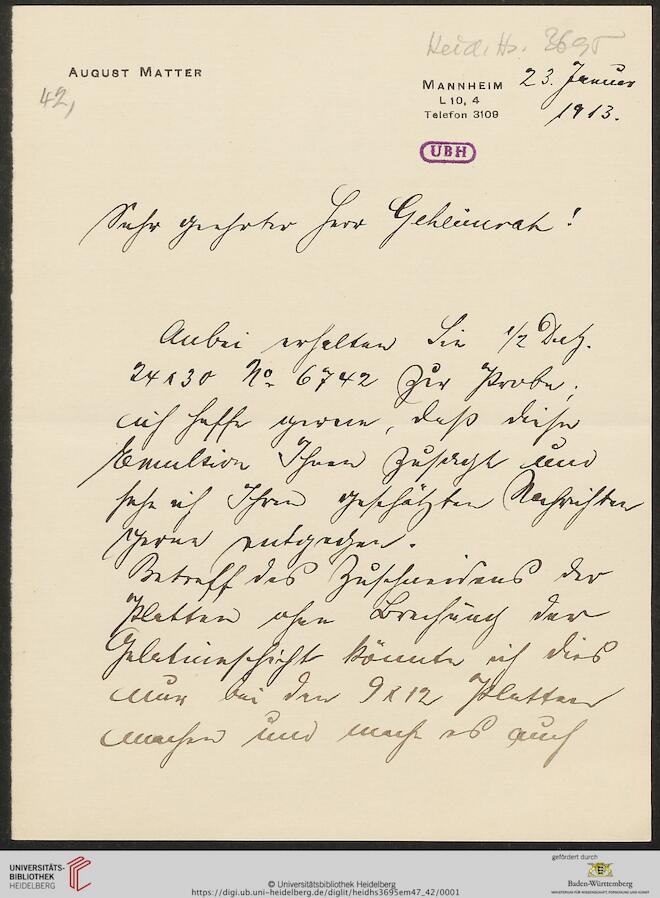 Heid. Hs. 3695
42,
AUGUST MATTER
MANNHEIM 23. Januar
L 10, 4
Telefon 3109
1913.
UBH
Sehr geehrter Herr Geheimrat!
Anbei erhalten Sie 1/2 Dutz.
24x30 No 6742 zur Probe,
ich hoffe gerne, daß diese
Emulsion Ihnen zusagt und
sehe ich Ihren geschätzten Nachrichten
gerne entgegen.
Betreff des Zuschneidens der
Platten ohne Brechung der
Gelatineschicht könnte ich dies
nur bei den 9x12 Platten
machen und mache es auch
UNIVERSITÄTS-
BIBLIOTHEK
HEIDELBERG
© Universitätsbibliothek Heidelberg
https://digi.ub.uni-heidelberg.de/diglit/heidhs3695em47_42/0001
gefördert durch
Baden-Württemberg
MINISTERIUM FÜR WISSENSCHAFT, FORSCHUNG UND KUNST